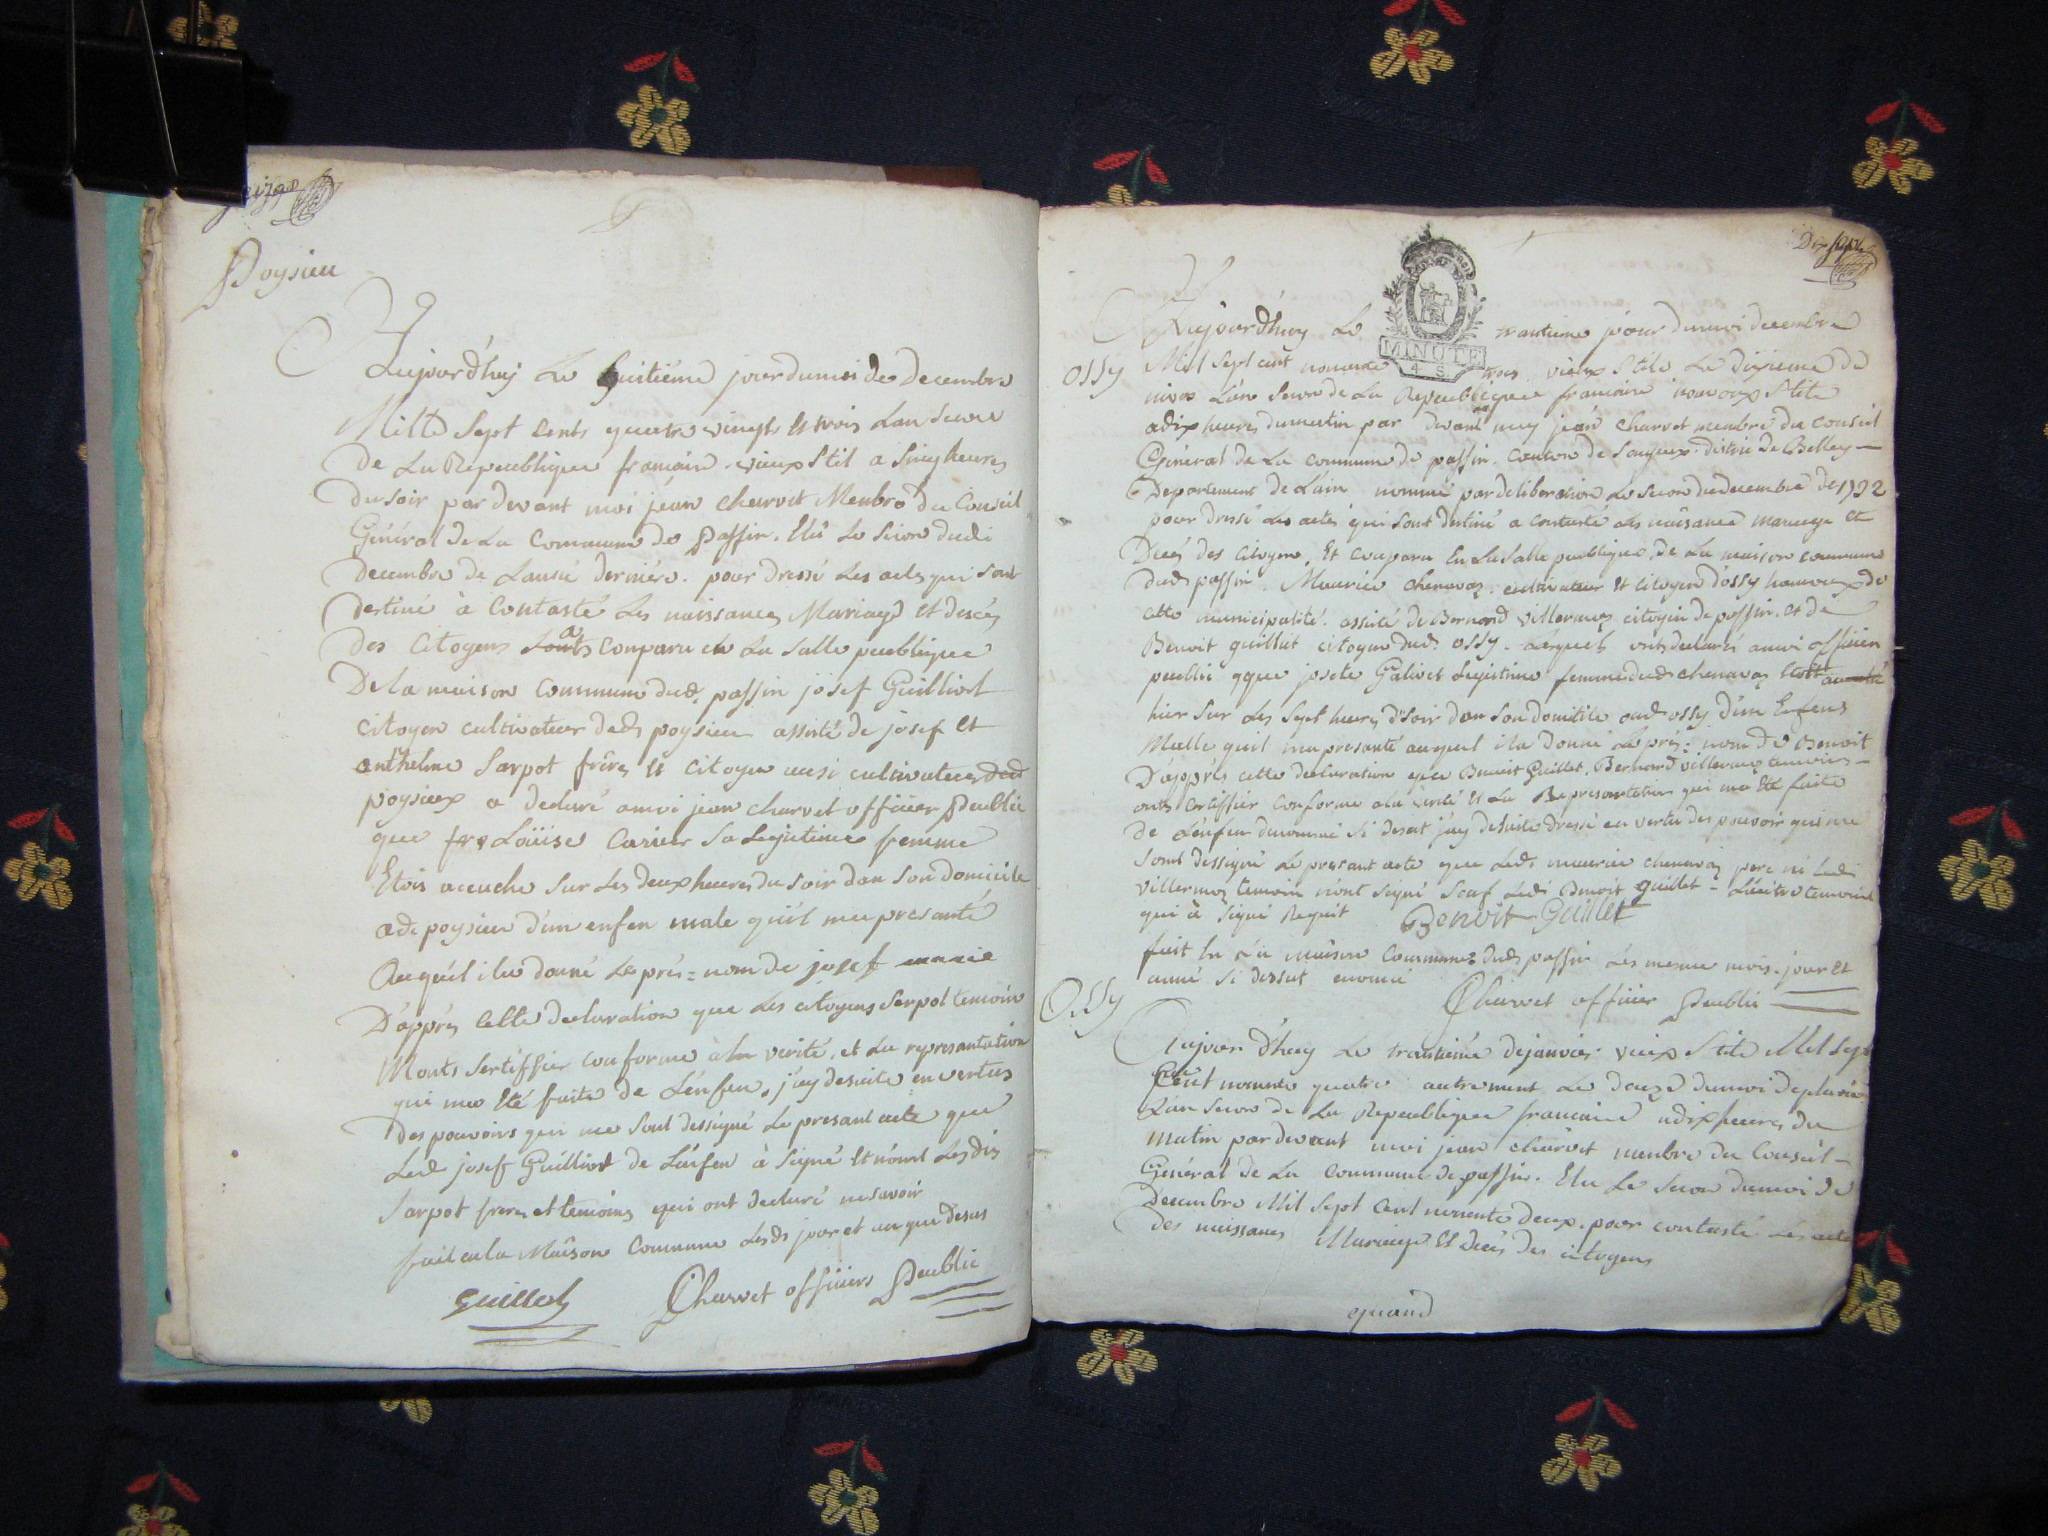 Poysieu
Aujourd'huy Le huitiéme jour du moi de Decembre
Mille Sept Cents quatre vingts et trois L'an Secon
De La Republique francaise. vieux Stil a Sinq heures
Du Soir par devant moi jean Charvet Menbre du Conseil
Général De La Commune de passin. Elû Le Secon dudi
Decembre de L'année derniére. pour dressé Les actes qui sont
Destiné à Contasté Les naissances Mariage et descés
des Citoyens a Comparu en La Salle publique
De la maison Commune dud. passin josef Guilliot
Citoyen cultivateur dud. poysieu assisté de josef et
anthelme Sarpot fréres et Citoyen ausi cultivateurs dud
poysieux a declaré a moi jean charvet officier Public
que Loüise Carier Sa Legitime femme
Etois acouché Sur Les deux heures du Soir dan Son Domicile
ad. poysieu d'un enfen male qu'il m'a presanté
Auquél il a donné Le prés=nom de josef
D'apprés Cette declaration que Les citoyens Serpot temoin
M'onts Sertiffier conforme à la verité, et La represantation
qui m'a Eté faite de L'énfen, j'ay desuite en vertus
des pouvoirs qui me sont dessigné Le presant acte que
Led. josef Guilliot de L'énfen à Signé et n'ont Les dis
Sarpot freres et temoins qui ont declaré ne savoir
fait en la Maison Commune Lesds jour et an que desus
Guilliot Charvet officiers Public
MINUTE
4 S.
Aujourd'huy Le trantieme jour du moi decembre
Ossy Mil Sept cent nonente trois vieux Stile Le dixieme de
nivos L'an Secon de La Republique francaise nouveux Stile
a dix heures du matin par devant moy jean Charvet menbre du Conseil
Général de La Commune de passin. Canton de Songieux. distric de Belley
Departement de L'ain nommé par deliberation Le Secon du decembre de 1792
pour dressé Les actes qui sont destiné a contasté Les naisance mariage et
Decés des Citoyens, Et Comparu En La Salle publique de La maison commune
dud. passin. Maurice Chenavaz cultivateur et Citoyen d'ossy hamaux de
cette municipalité. assisté de Bernard Villermoz citoyen de passin. et de
Benoit guillet citoyen dud. Ossy. Lesquels onts declarés a moi officier
public que josete Galivet Legitime femme dud. Chenavaz
hier Sur Les Sept heures du Soir dan Son domicile aud. ossy d'un Enfens
Malle qu'il m'a presanté auquel il a donné Le prés= nom de Benoit
D'apprés cette declaration que Benoit Guillet, Bernard Villermoz temoins
onts Certiffier Conforme a la verité et La Represantation qui m'a Eté faite
de L'enfen denommé Si desut j'ay desuite dressé en vertu des pouvoir qui me
sont dessigné Le presant acte que Led. maurice chenavaz pere ni Ledi
Villermoz temoin n'ont signé Seuf Ledi Benoit Guillet L'autre temoins
qui à Signé Requit Benoit Guillet
fait En La maison Commune dud. passin Les mesme mois. jour et
anné Si desut enoncé
Charvet officier Public
Ossy
Aujour d'huy Le trantiéme de janvier vieux Stile Mil Sept
Cent nonente quatre autrement Le douze du moi de pluviose
L'an Secon de La Republique francaise a dix heures du
matin par devant moi jean Charvet menbre du Conseil
Général de La Commune de passin. Elu Le Secon du moi de
Decembre Mil Sept Cent nonente deux. pour contasté Les acte
des naissances Mariage et decés des citoyens
quand